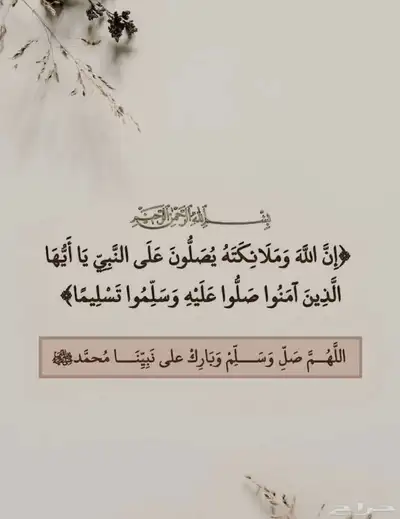 بِسْمِ اللَّهِ الرَّحْمَٰنِ الرَّحِيمِ
﴿إِنَّ اللَّهَ وَمَلَائِكَتَهُ يُصَلُّونَ عَلَى النَّبِيِّ يَا أَيُّهَا
الَّذِينَ آمَنُوا صَلُّوا عَلَيْهِ وَسَلِّمُوا تَسْلِيمًا﴾
اللَّهُمَّ صَلِّ وَسَلِّمْ وَبَارِكْ على نَبِيِّنَا مُحمَّد ﷺ
حراج